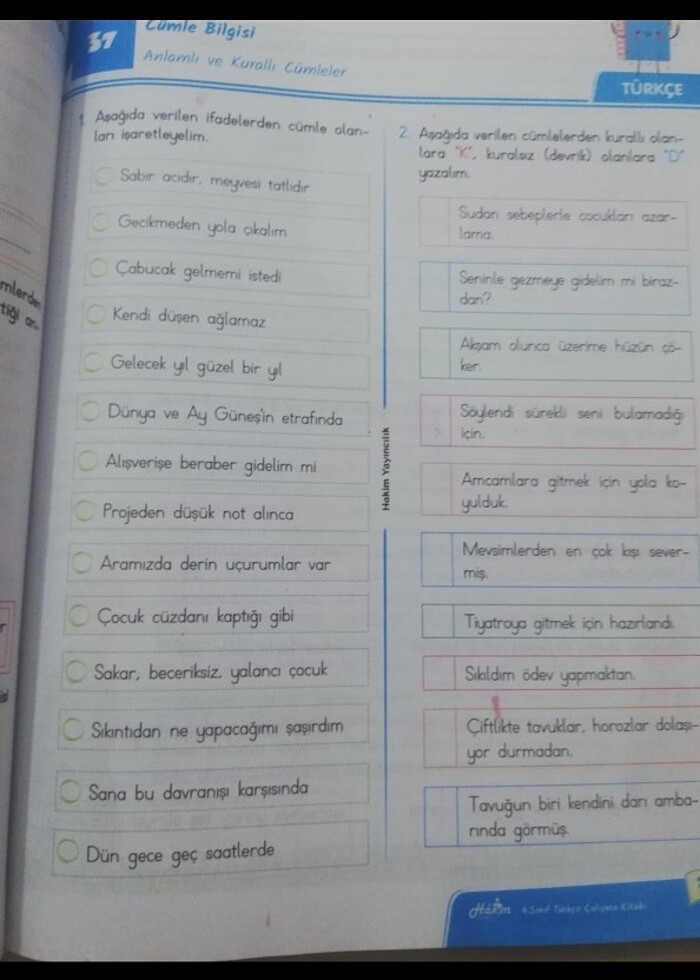 37
Cümle Bilgisi
Anlamlı ve Kurallı Cümleler
TÜRKÇE
1. Aşağıda verilen ifadelerden cümle olan-
ları işaretleyelim.
Sabır acıdır, meyvesi tatlıdır
Gecikmeden yola çıkalım
Çabucak gelmemi istedi
Kendi düşen ağlamaz
Gelecek yıl güzel bir yıl
Dünya ve Ay Güneş'in etrafında
Alışverişe beraber gidelim mi
Projeden düşük not alınca
Aramızda derin uçurumlar var
Çocuk cüzdanı kaptığı gibi
Sakar, beceriksiz, yalancı çocuk
Sıkıntıdan ne yapacağımı şaşırdım
Sana bu davranışı karşısında
Dün gece geç saatlerde
Hakim Yayıncılık
2. Aşağıda verilen cümlelerden kurallı olan-
lara "K", kuralsız (devrik) olanlara "D"
yazalım.
Sudan sebeplerle çocukları azar-
lama.
Seninle gezmeye gidelim mi biraz-
dan?
Akşam olunca üzerime hüzün çö-
ker.
Söylendi sürekli seni bulamadığı
için.
Amcamlara gitmek için yola ko-
yulduk.
Mevsimlerden en çok kışı sever-
miş.
Tiyatroya gitmek için hazırlandı.
Sıkıldım ödev yapmaktan.
Çiftlikte tavuklar, horozlar dolaşı-
yor durmadan.
Tavuğun biri kendini darı amba-
rında görmüş.
Hakim
4.Sınıf Türkçe Çalışma Kitabı